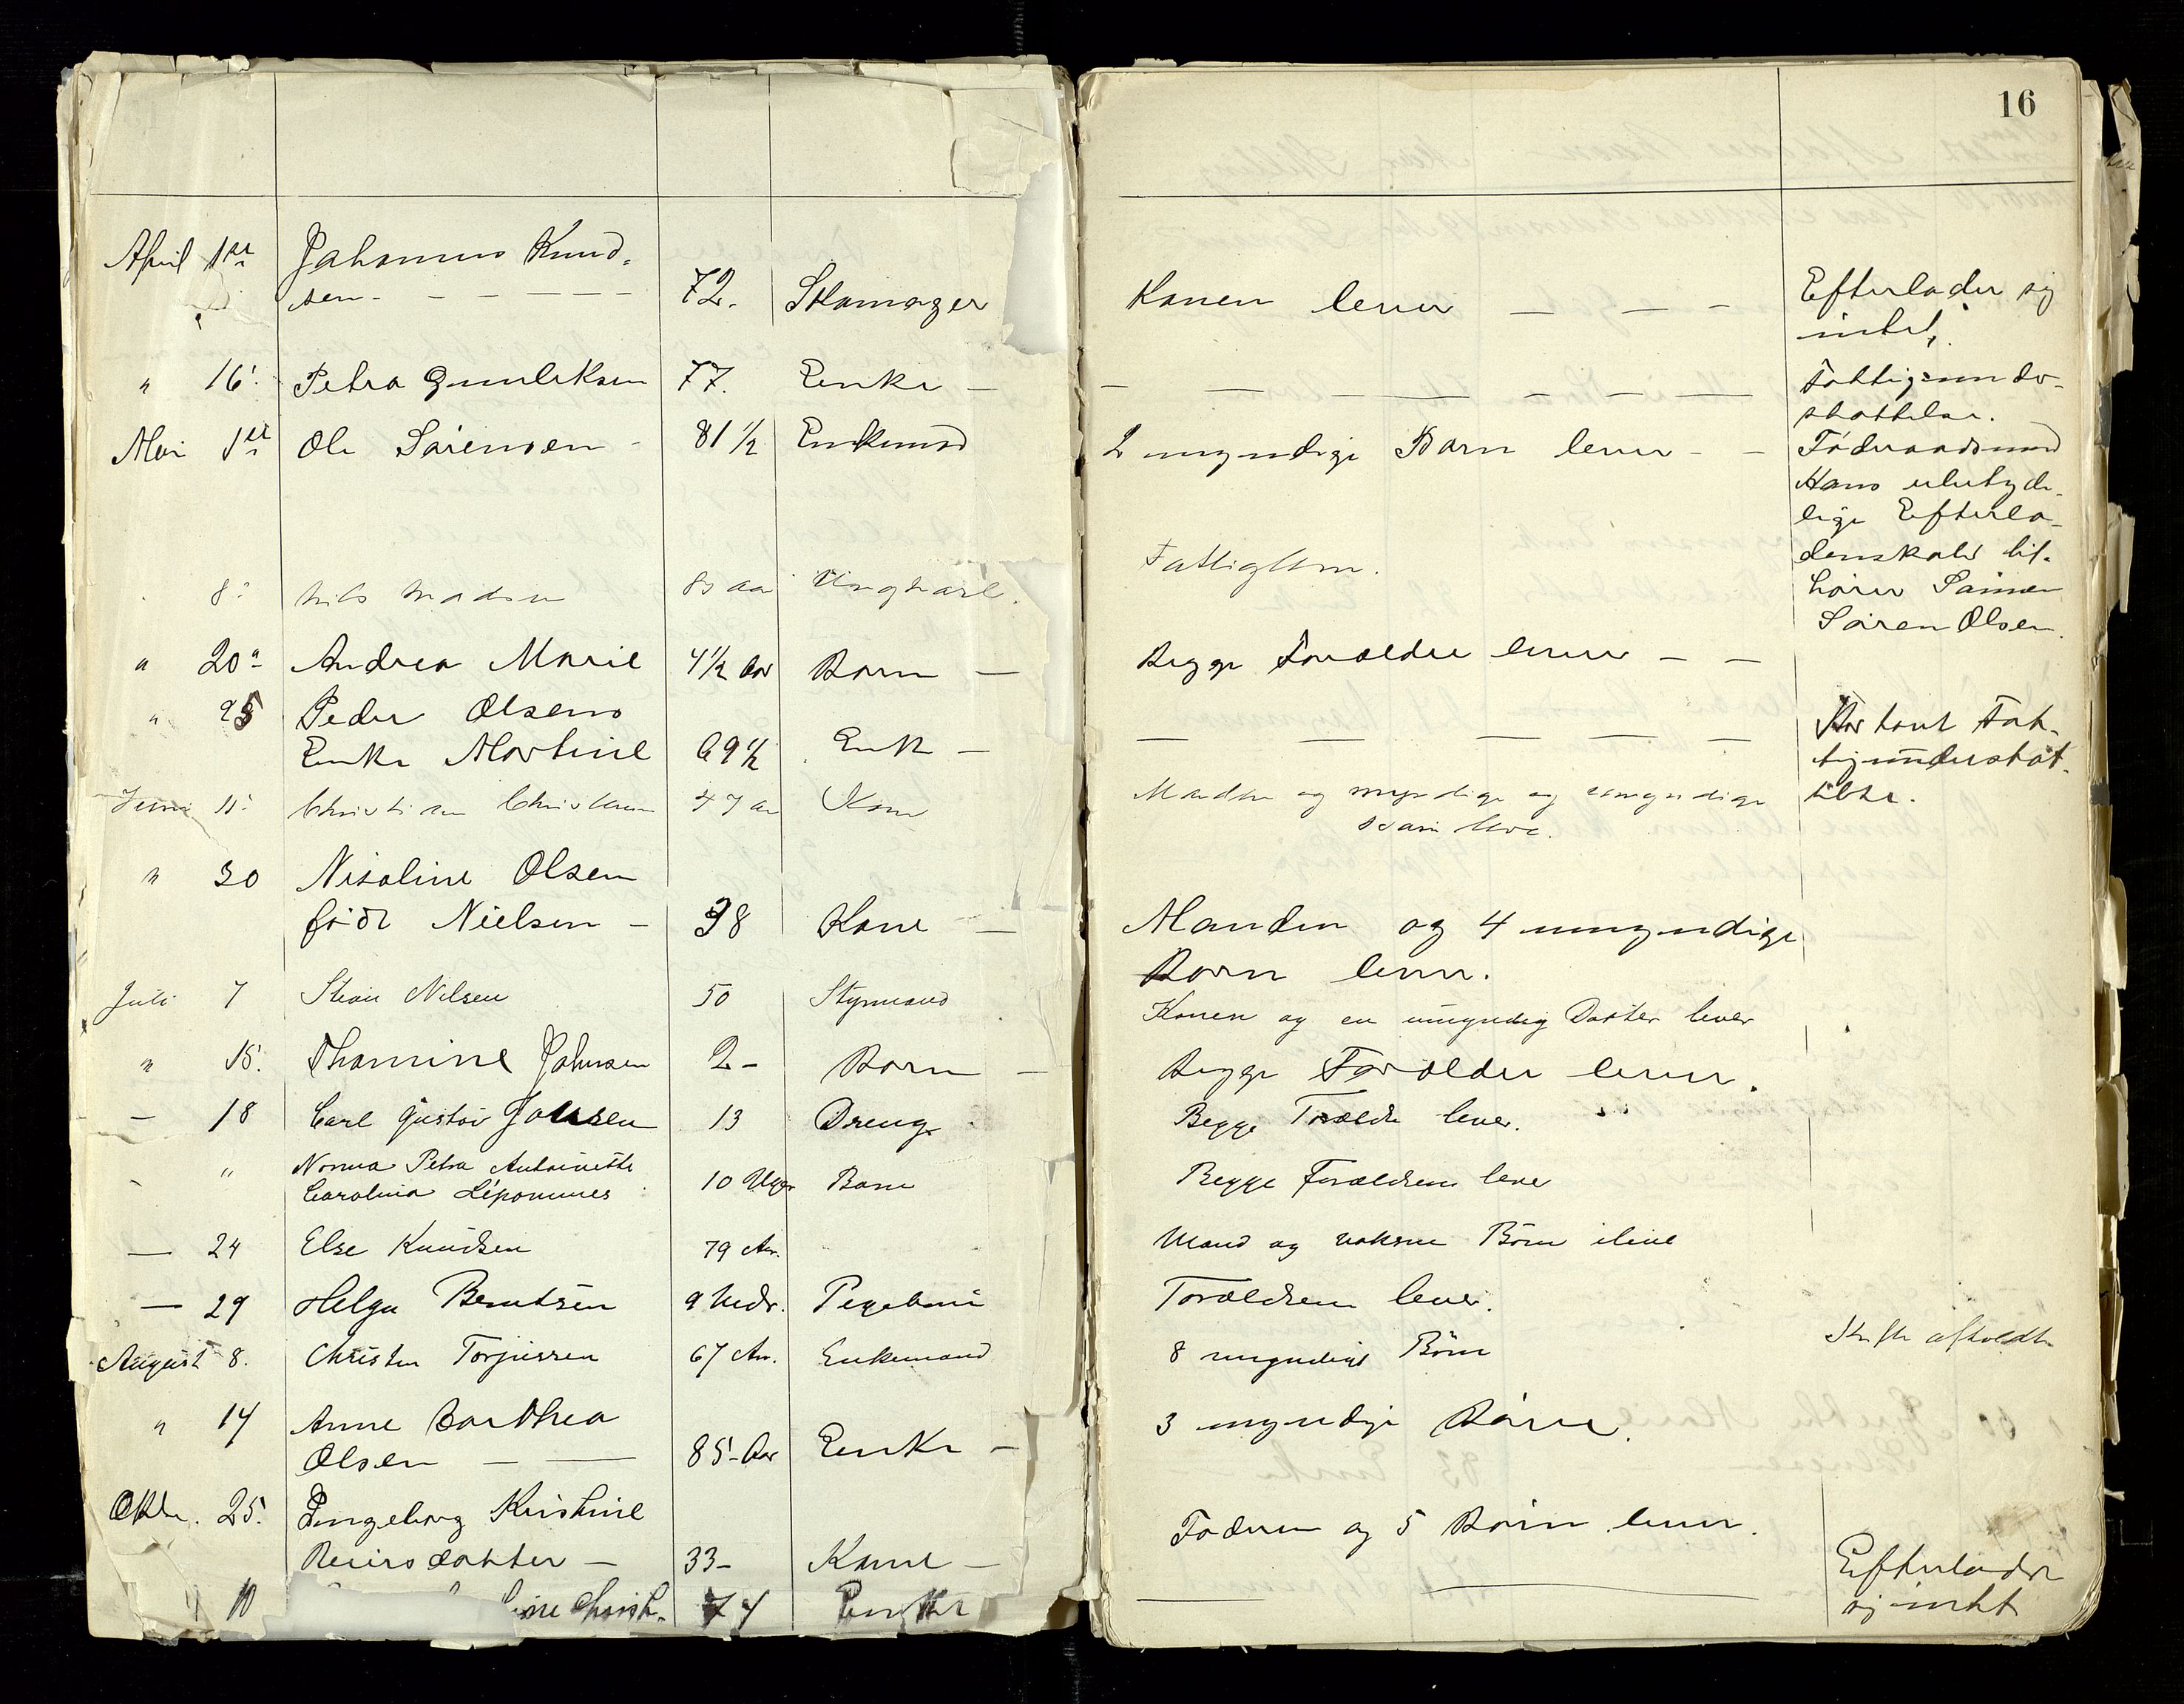 16
April 1ste Johannes Knud-
sen - - - - - 72. Skomager Konen lever - - - Efterlader sig
intet.
" 16. Petra Gundersen 77. Enke - - - - - - - - Fattigunder-
støttelse.
Mai 1ste Ole Sørensen - 81 1/2 Enkemand 2 myndige Børn lever - - Føderaadsmand
Hans ubetyde-
lige Efterla-
denskaber til-
hører Sønnen
Søren Olsen.
8. Nils Madsen 83 aar Ungkarl. Fattiglem.
" 20. Andrea Marie 4 1/2 Aar Barn - Begge Forældre lever - -
" 25 Peder Olsens
Enke Martine 69 1/2 Enke - - - - - - Har havt Fat-
tigunderstøt-
telse.
Juni 11. Christiane Christensen 47 aar Kone Manden og myndige og umyndige
Børn leve.
" 30 Nisoline Olsen
født Nielsen - 38 Kone - Manden og 4 umyndige
Børn lever.
Juli 7 Stian Nilsen 50 Styrmand Konen og en umyndig Datter lever
" 15. Thomine Johnsen 2 - Barn - Begge Forældre lever.
- 18 Carl Gustav Johnsen 13 Dreng. Begge Forældre lever.
- " Norma Petra Antoinette
Carolina Lépommes 10 Uger Barn Begge Forældrene lever
- 24 Else Knudsen 79 Aar. Mand og voksne Børn ilive
- 29 Helga Berntsen 9 Mdr. Pegebarn Forældrene lever.
August 8. Christen Torjussen 67 Aar. Enkemand 8 myndige Børn Skifte afholdt
" 14 Anne Barthea
Olsen - - 85 - Aar Enke - 3 myndige Børn.
Oktbr. 25. Ingeborg Kristine
Reiersdatter - 33 - Kone - Faderen og 5 Børn lever.
10 74 Enke Efterlader
sig intet